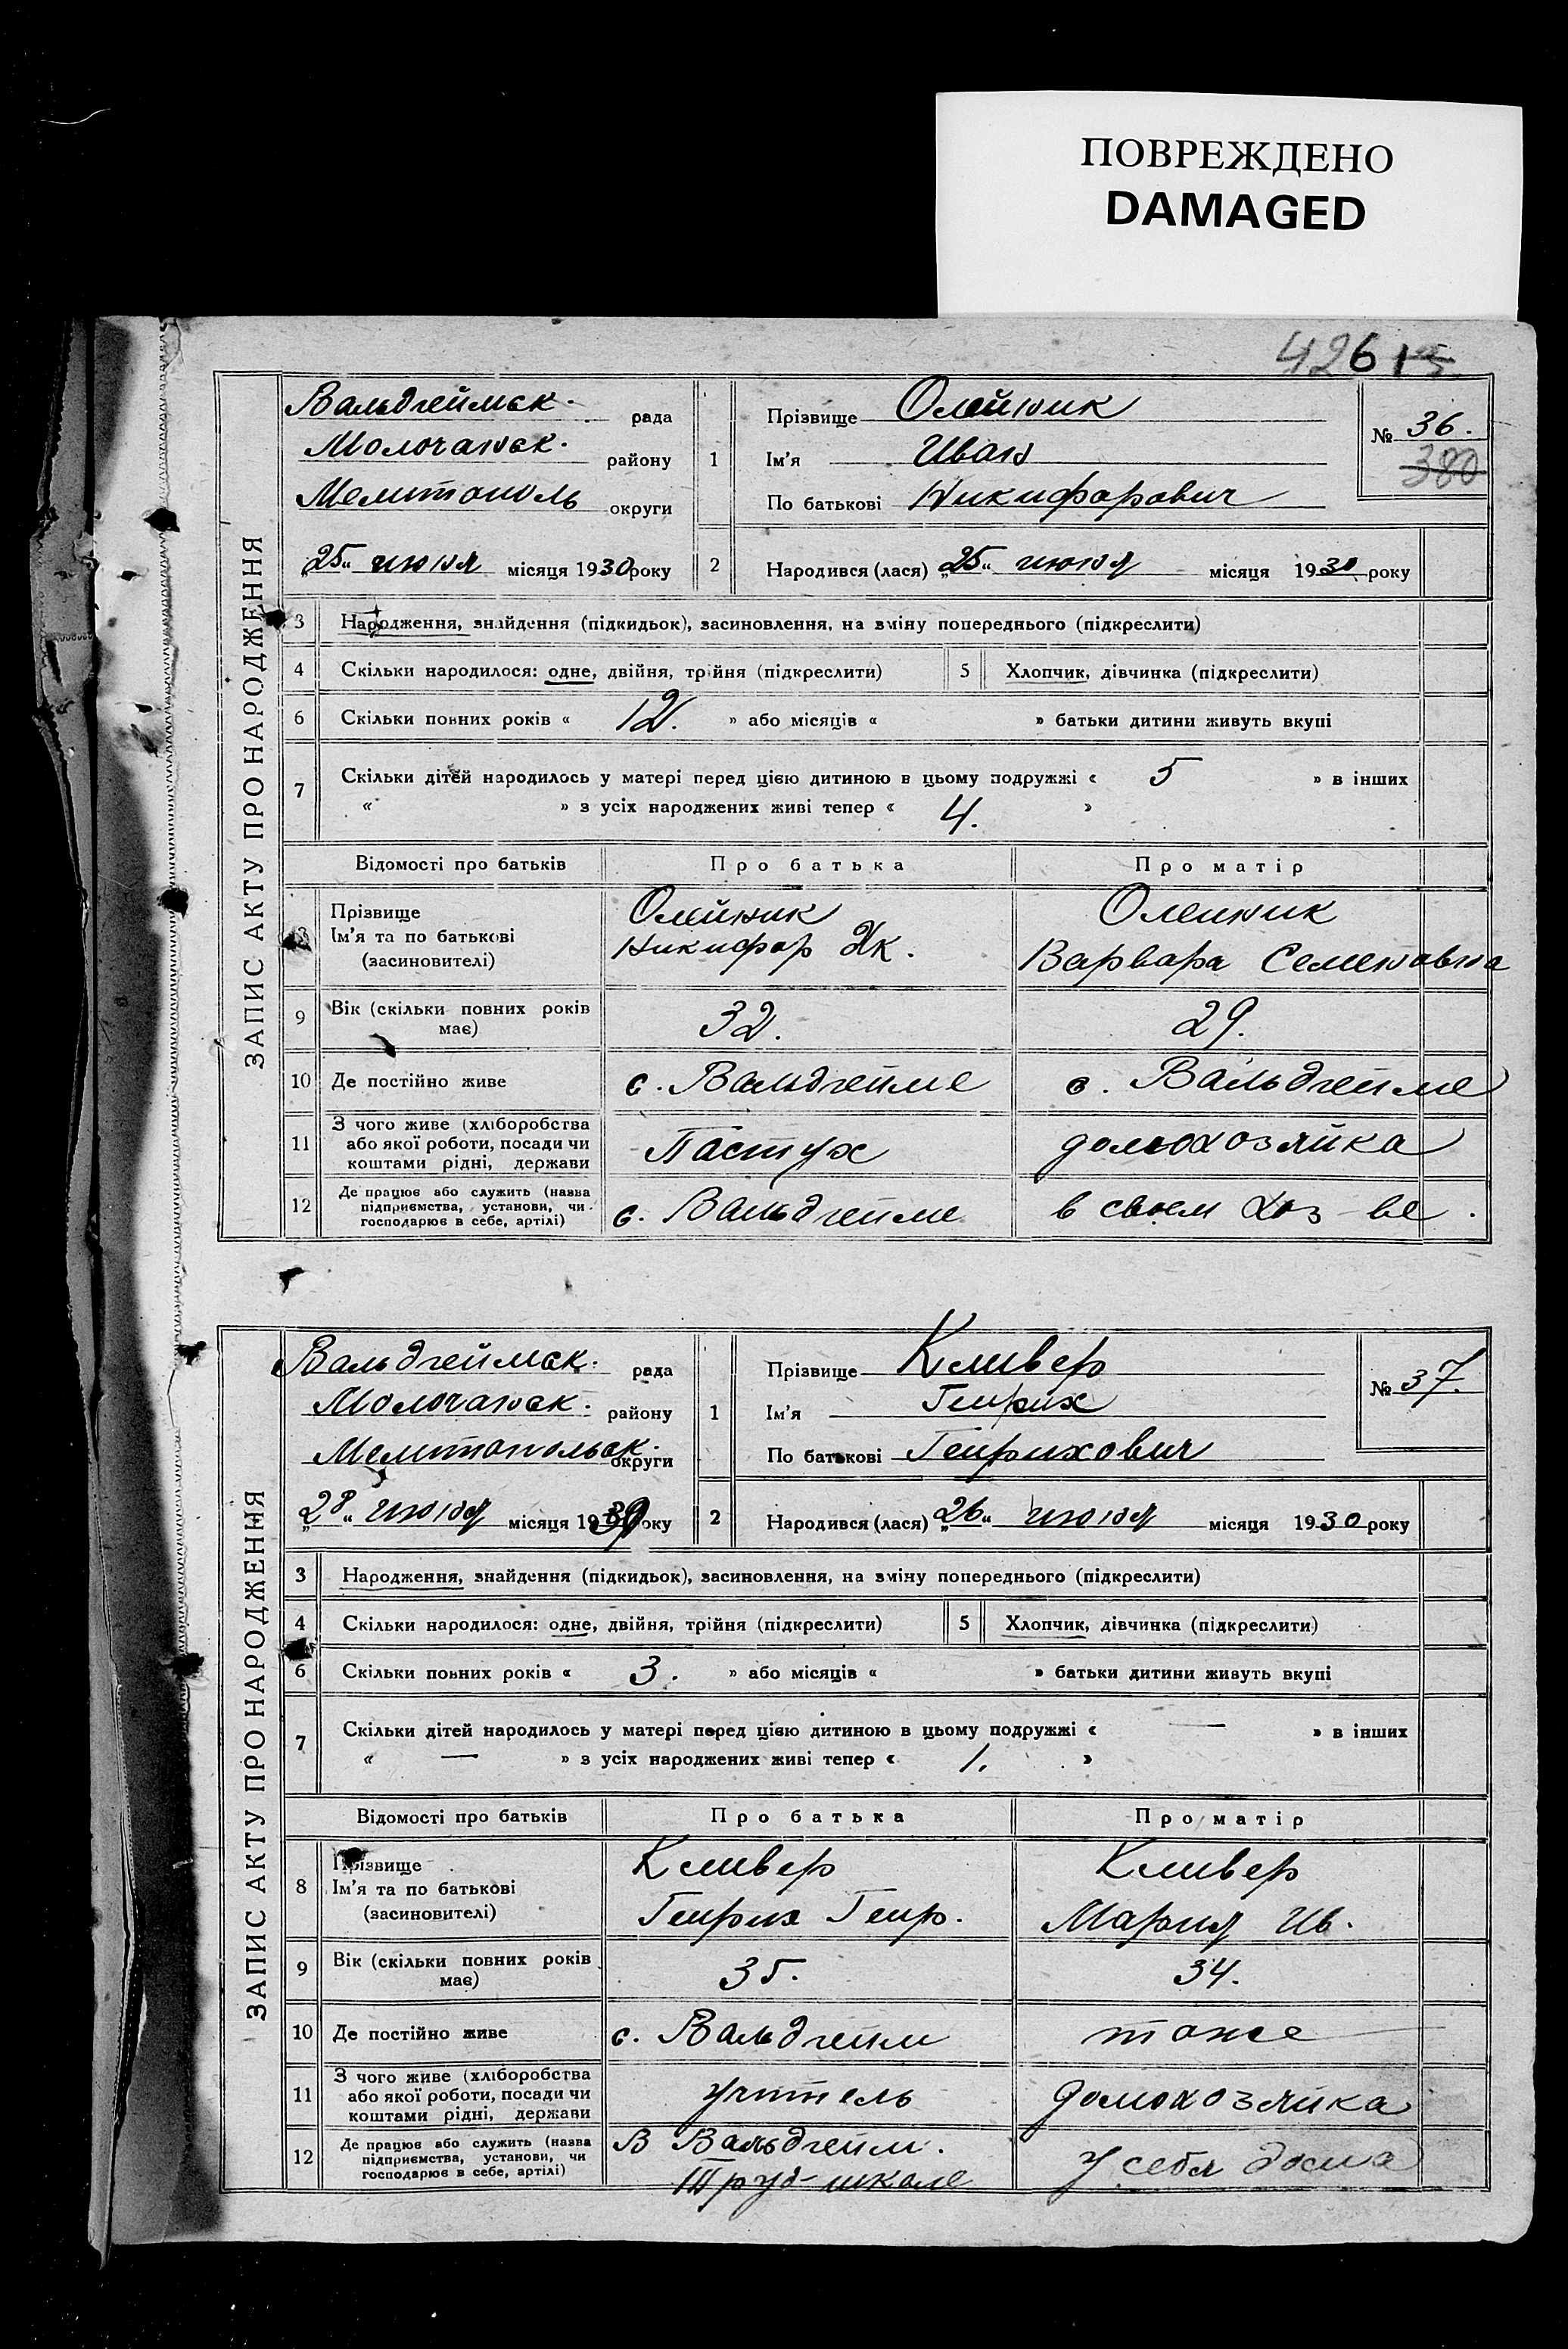 ПОВРЕЖДЕНО
DAMAGED
426
ЗАПИС АКТУ ПРО НАРОДЖЕННЯ
Вальдгеймск. рада
Молочанск. району
Мелитополь округи
„25“ июня місяця 1930 року
1
Прізвище Олейник
Ім'я Иван
По батькові Никифорович
№ 36.
380
2
Народився (лася) „25“ июня місяця 1930 року
3 Народження, знайдення (підкидьок), засиновлення, на зміну попереднього (підкреслити)
4 Скільки народилося: одне, двійня, трійня (підкреслити) 5 Хлопчик, дівчинка (підкреслити)
6 Скільки повних років « 12. » або місяців « » батьки дитини живуть вкупі
7 Скільки дітей народилось у матері перед цією дитиною в цьому подружжі « 5 » в інших
« » з усіх народжених живі тепер « 4. »
Відомості про батьків Про батька Про матір
8 Прізвище
Ім'я та по батькові
(засиновителі)
Олейник
Никифор
Олейник
Варвара Семеновна
9 Вік (скільки повних років
має)
32. 29.
10 Де постійно живе с. Вальдгейме с. Вальдгейме
11 З чого живе (хліборобства
або якої роботи, посади чи
коштами рідні, держави
Пастух домохозяйка
12 Де працює або служить (назва
підприємства, установи, чи
господарює в себе, артілі)
с. Вальдгейме в своем хоз-ве.
ЗАПИС АКТУ ПРО НАРОДЖЕННЯ
Вальдгеймск. рада
Молочанск. району
Мелитопольск. округи
„28“ июня місяця 1930 року
1
Прізвище Кливер
Ім'я Генрих
По батькові Генрихович
№ 37.
2
Народився (лася) „26“ июня місяця 1930 року
3 Народження, знайдення (підкидьок), засиновлення, на зміну попереднього (підкреслити)
4 Скільки народилося: одне, двійня, трійня (підкреслити) 5 Хлопчик, дівчинка (підкреслити)
6 Скільки повних років « 3. » або місяців « » батьки дитини живуть вкупі
7 Скільки дітей народилось у матері перед цією дитиною в цьому подружжі « — » в інших
« — » з усіх народжених живі тепер « 1. »
Відомості про батьків Про батька Про матір
8 Прізвище
Ім'я та по батькові
(засиновителі)
Кливер
Генрих Генр.
Кливер
Мария Ив.
9 Вік (скільки повних років
має)
35. 34.
10 Де постійно живе с. Вальдгейм тоже
11 З чого живе (хліборобства
або якої роботи, посади чи
коштами рідні, держави
учитель домохозяйка
12 Де працює або служить (назва
підприємства, установи, чи
господарює в себе, артілі)
В Вальдгейм.
Труд-школе
у себя дома